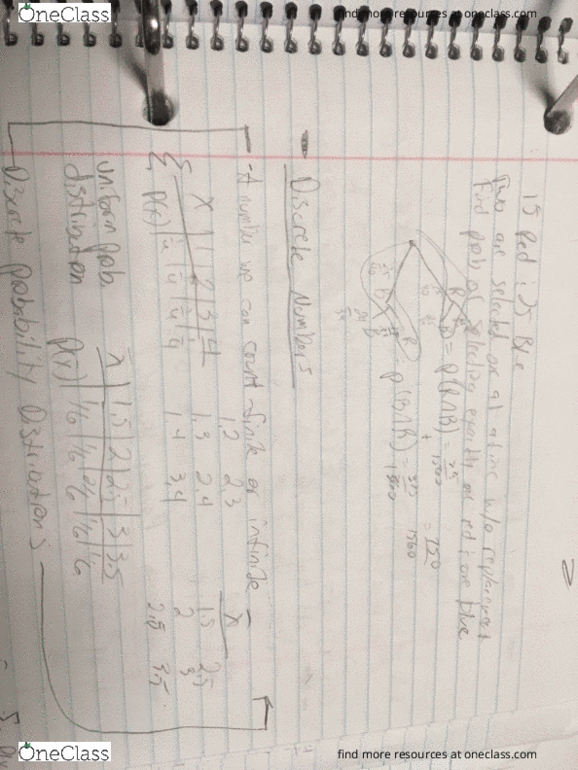 OneClass
find more resources at oneclass.com
15 Red ; 25 Blue
Two are selected one at a time w/o replacement
Find prob of selecting exactly one red ; one blue
= P(R∩B) = 375
+ 1560
= 750
1560
P(B∩R) = 375
1560
- Discrete Numbers
- A number we can count - finite or infinite -
x | 1 | 2 | 3 | 4
P(x) | 1/4 | 1/4 | 1/4 | 1/4
1,2 2,3
1,3 2,4
1,4 3,4
x̄
1.5 2.5
2 3
2.5 3.5
uniform prob.
distribution
x̄ | 1.5 | 2 | 2.5 | 3 | 3.5
P(x̄) | 1/6 | 1/6 | 2/6 | 1/6 | 1/6
Discrete probability Distributions
OneClass
find more resources at oneclass.com